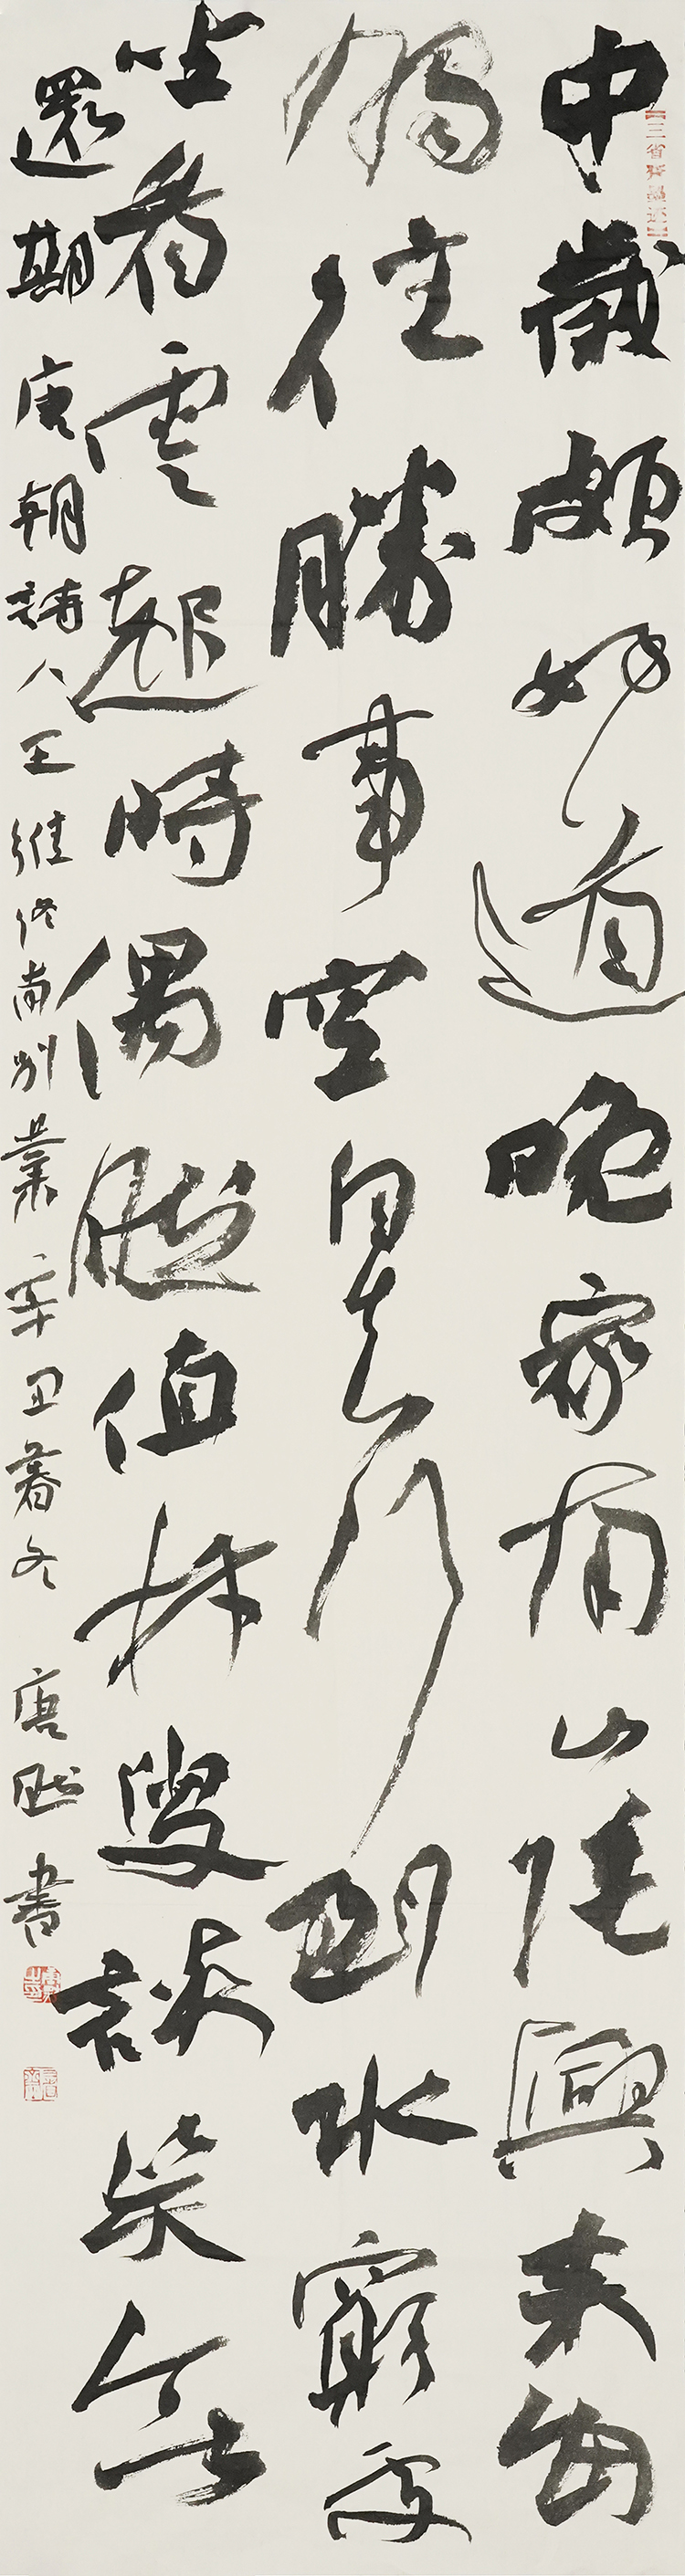 【三省齋墨迹】
中歲頗好道晚家南山陲興來每
獨往勝事空自知行到水窮處
坐看雲起時偶然值林叟談笑無
還期 唐朝詩人王維終南別業 辛丑暮冬 唐然書